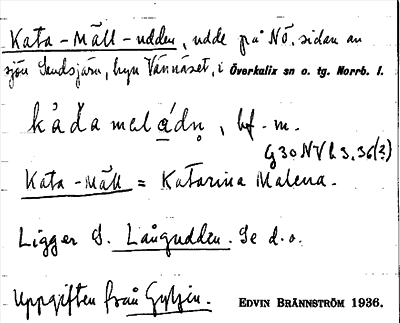 Kata-Mäll-udden, udde på NÖ. sidan av
sjön Sandsjärv, byn Vännäset, i Överkalix sn o. tg. Norrb. l.
kȧđamaladn̥, bf. m.
G 30 NV b 3. 36 (?)
Kata-Mäll = Katarina Malena.
Ligger S. Långudden. Se d.o.
Uppgiften från Gyljen. EDVIN BRÄNNSTRÖM 1936.